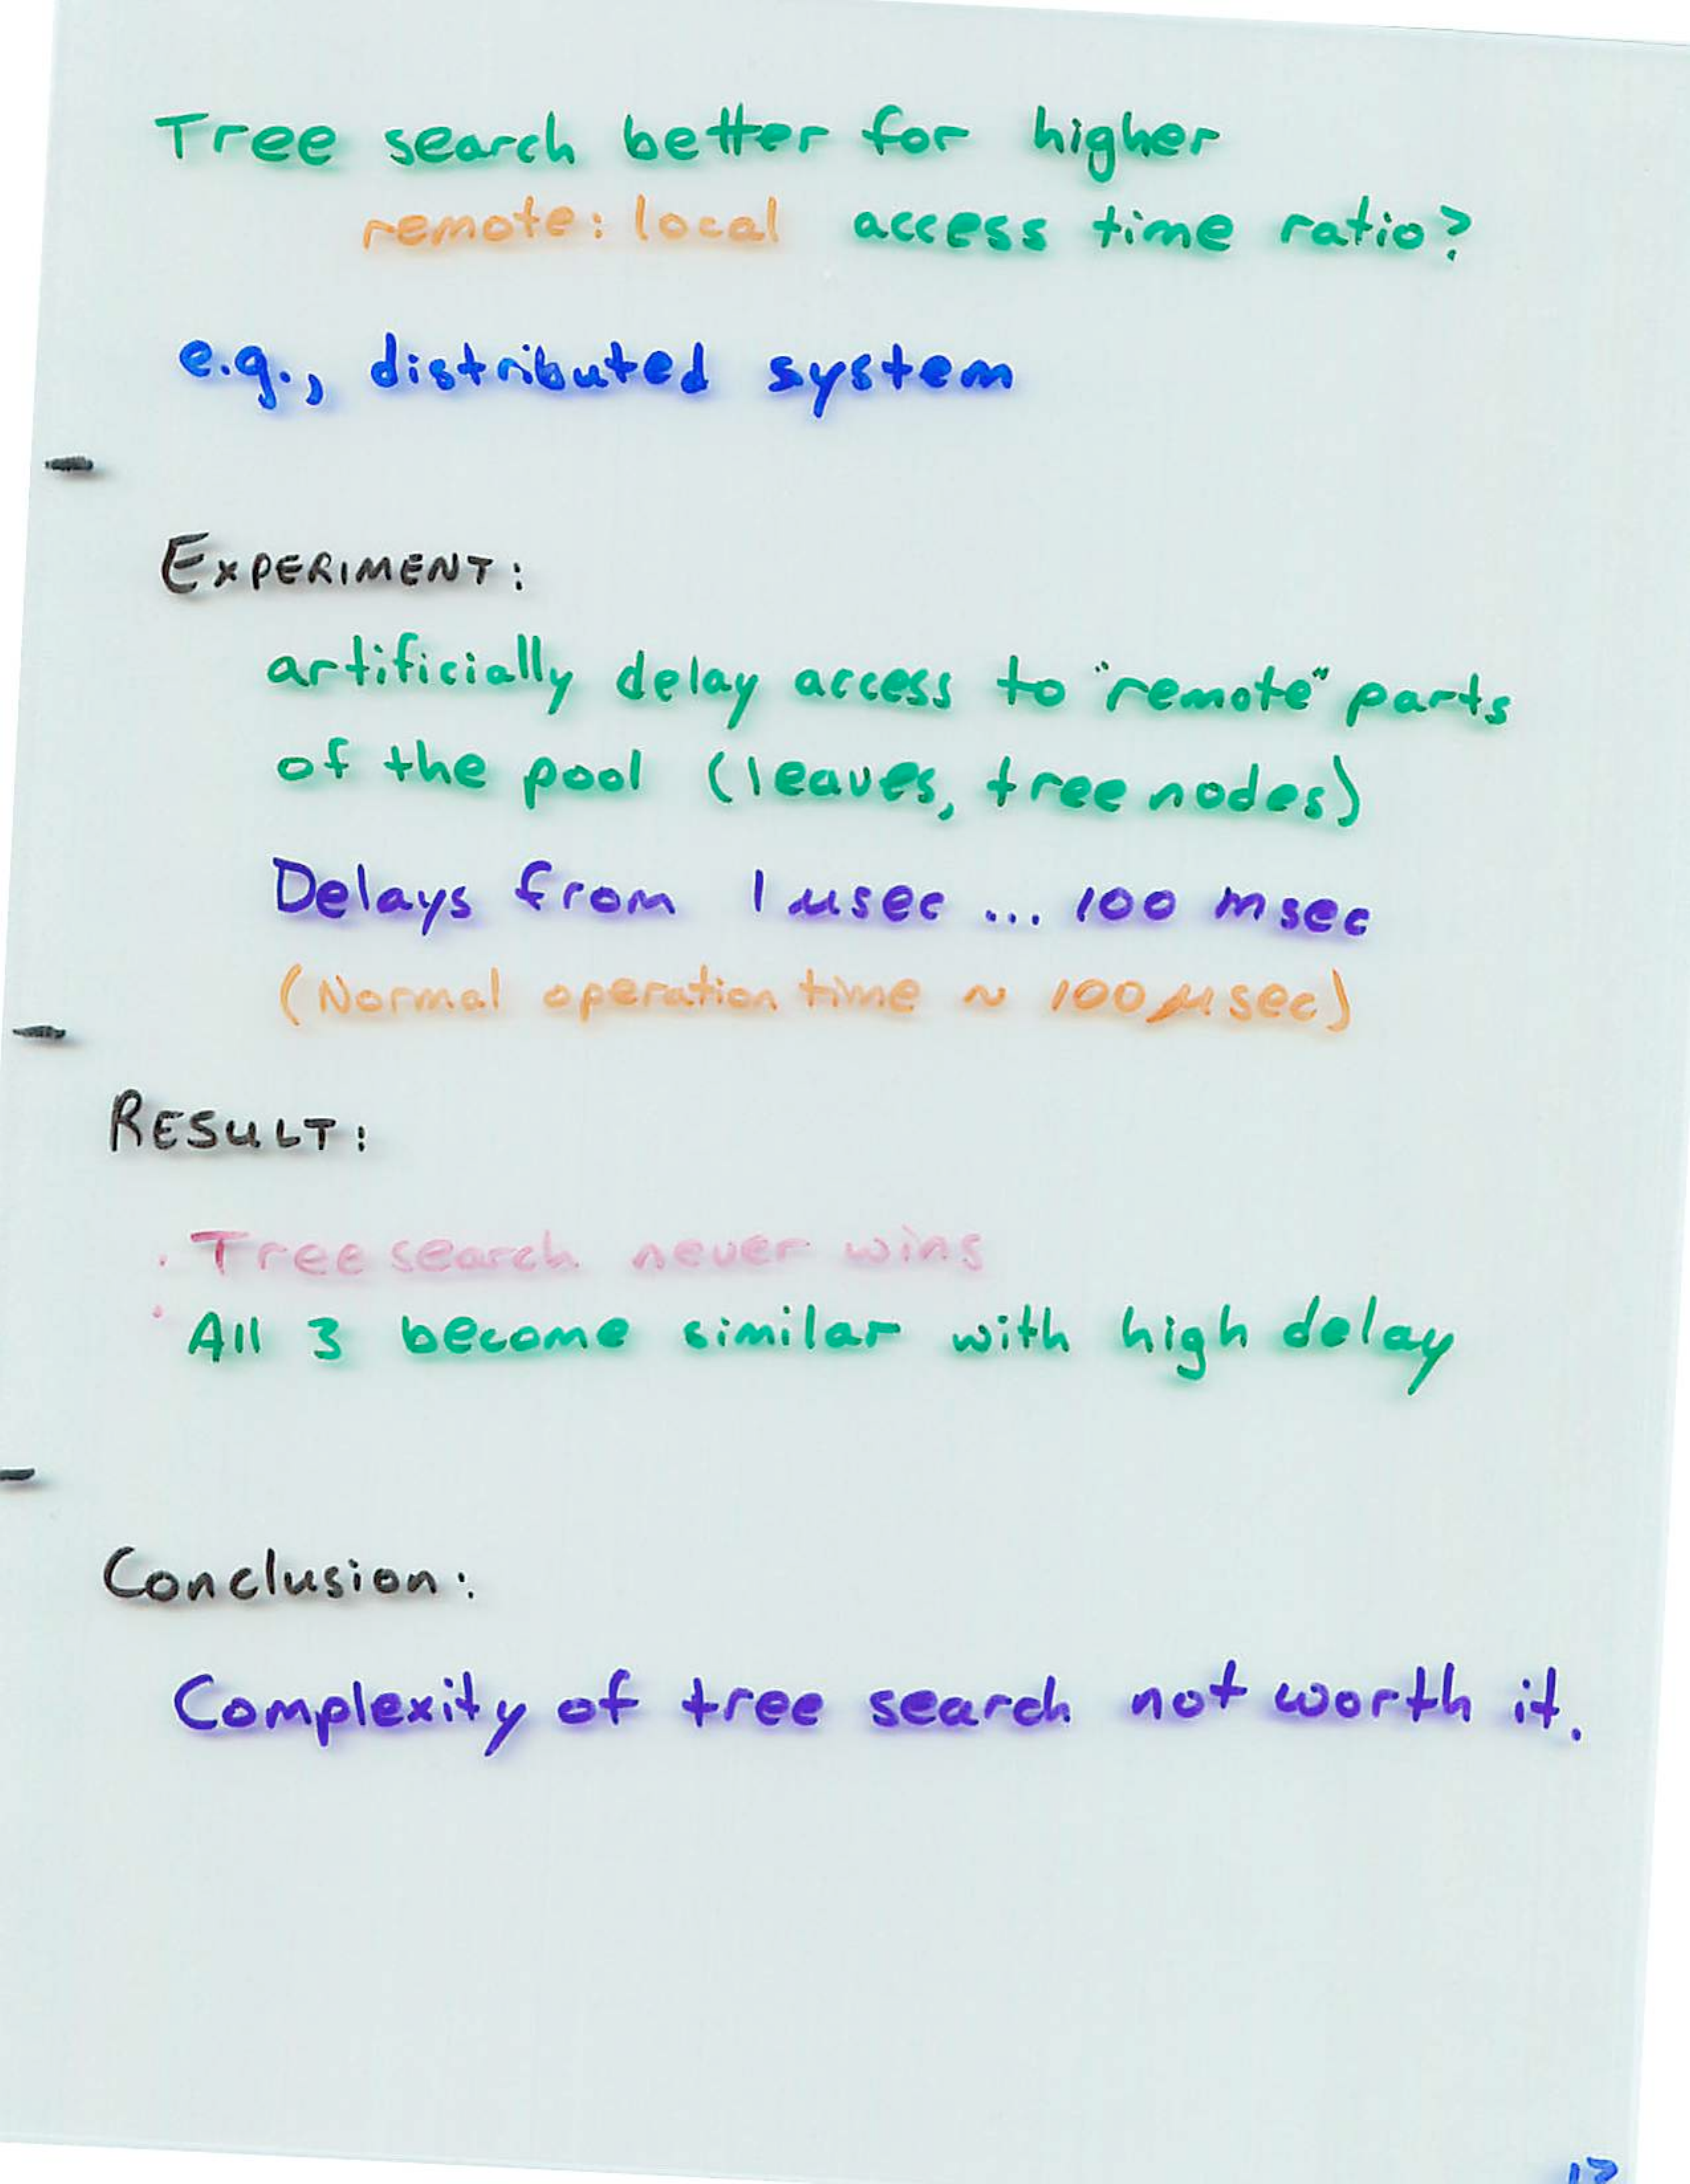 Tree search better for higher
remote: local access time ratio?
e.g., distributed system
EXPERIMENT:
artificially delay access to "remote" parts
of the pool (leaves, tree nodes)
Delays from 1 μsec ... 100 msec
(Normal operation time ~ 100 μsec)
RESULT:
· Tree search never wins
· All 3 become similar with high delay
Conclusion:
Complexity of tree search not worth it.